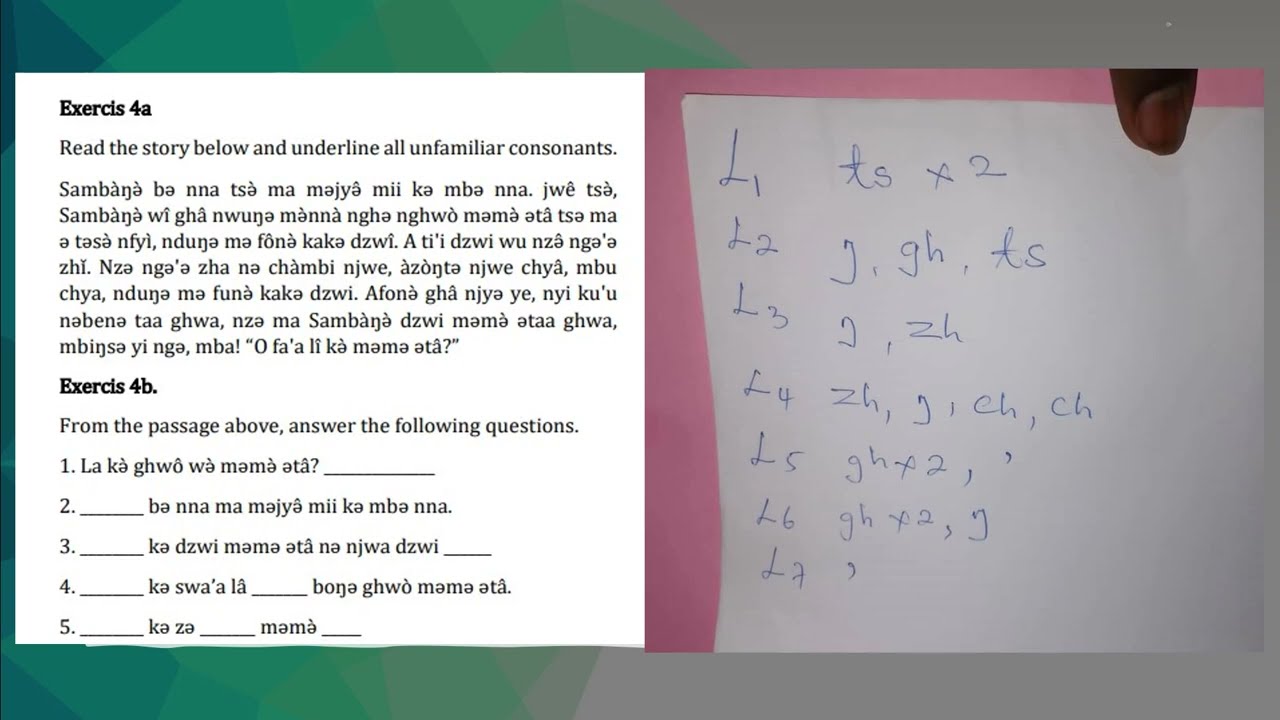 Exercis 4a
Read the story below and underline all unfamiliar consonants.
Sambàŋə̀ bə nna tsə̀ ma məjyə̂ mii kə mbə nna. jwê tsə̀,
Sambàŋə̀ wî ghâ nwuŋə mə̀nnà nghə nghwò məmə̀ ətâ tsə ma
ə təsə̀ nfyì, nduŋə mə fônə̀ kakə dzwî. A ti'i dzwi wu nzə̂ ngə'ə
zhǐ. Nzə ngə'ə zha nə chàmbi njwe, àzòŋtə njwe chyâ, mbu
chya, nduŋə mə funə̀ kakə dzwi. Afonə̀ ghâ njyə ye, nyi ku'u
nəbenə taa ghwa, nzə ma Sambàŋə̀ dzwi məmə̀ ətaa ghwa,
mbiŋsə yi ngə, mba! “O fa'a lî kə̀ məmə ətâ?”
Exercis 4b.
From the passage above, answer the following questions.
1. La kə̀ ghwô wə̀ məmə̀ ətâ? ___________
2. _______ bə nna ma məjyə̂ mii kə mbə nna.
3. _______ kə dzwi məmə ətâ nə njwa dzwi _____
4. _______ kə swa’a lâ ______ boŋə ghwò məmə ətâ.
5. _______ kə zə ______ məmə̀ ____
L1 ts x 2
L2 ŋ, gh, ts
L3 ŋ, zh
L4 zh, ŋ, ch, ch
L5 gh x 2, ’
L6 gh x 2, ŋ
L7 ’